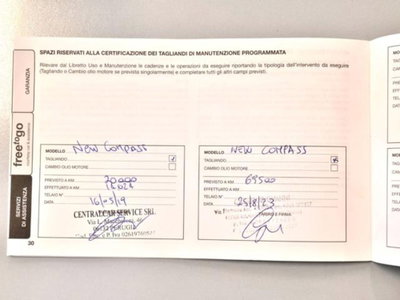 SPAZI RISERVATI ALLA CERTIFICAZIONE DEI TAGLIANDI DI MANUTENZIONE PROGRAMMATA
Rilevare dal Libretto Uso e Manutenzione le cadenze e le operazioni da eseguire riportando la tipologia dell'intervento da eseguire
(Tagliando o Cambio olio motore se prevista singolarmente) e completare tutti gli altri campi previsti.
GARANZIA
freetogo
SERVIZI
DI ASSISTENZA
MODELLO New Compass
TAGLIANDO
CAMBIO OLIO MOTORE
PREVISTO A KM 20000
EFFETTUATO A KM
TELAIO N°
DATA 16/05/19
CENTRALCAR SERVICE SRL
06132 PERUGIA
MODELLO NEW COMPASS
TAGLIANDO
CAMBIO OLIO MOTORE
PREVISTO A KM
EFFETTUATO A KM 69500
TELAIO N°
DATA 25/8/23
TIMBRO E FIRMA
30